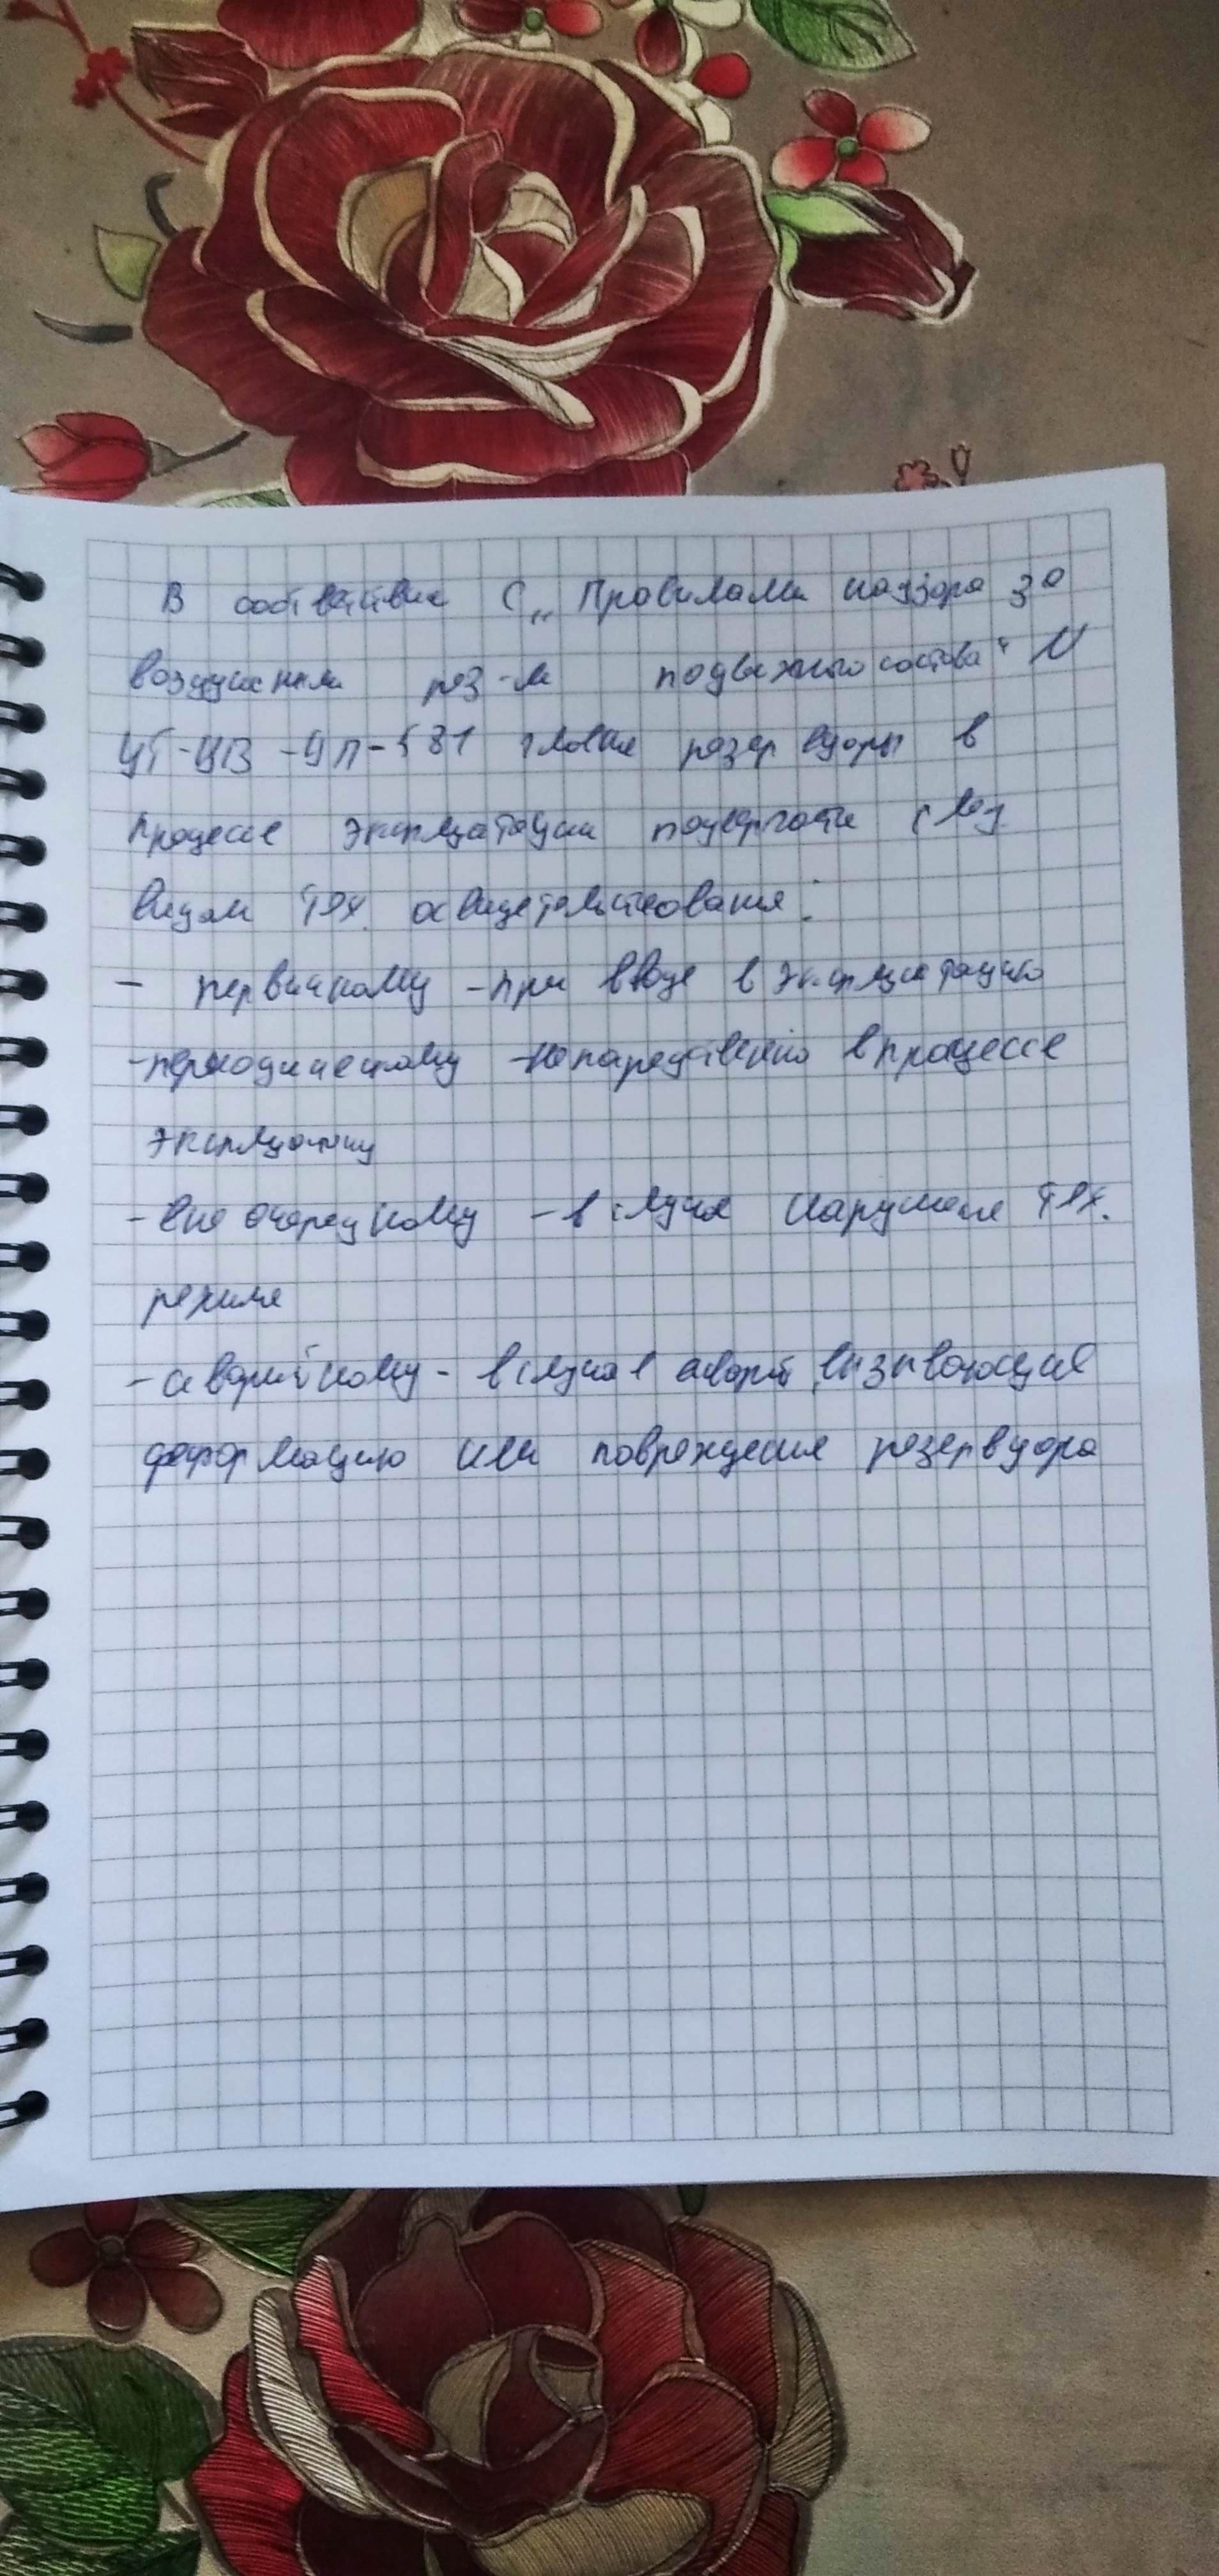 В соответствие с „Правилами надзора за
воздушным рез-м подвижного состава" N
ЦТ-ЦВ-ЦП-581 главные резервуары в
процессе эксплуатации подвергаются след.
видам тех. освидетельствования:
- первичному - при вводе в эксплуатацию
- периодическому - непосредственно в процессе
эксплуатации
- внеочередному - в случае нарушения тех.
режима
- аварийному - в случае аварий, вызывающие
деформацию или повреждение резервуара